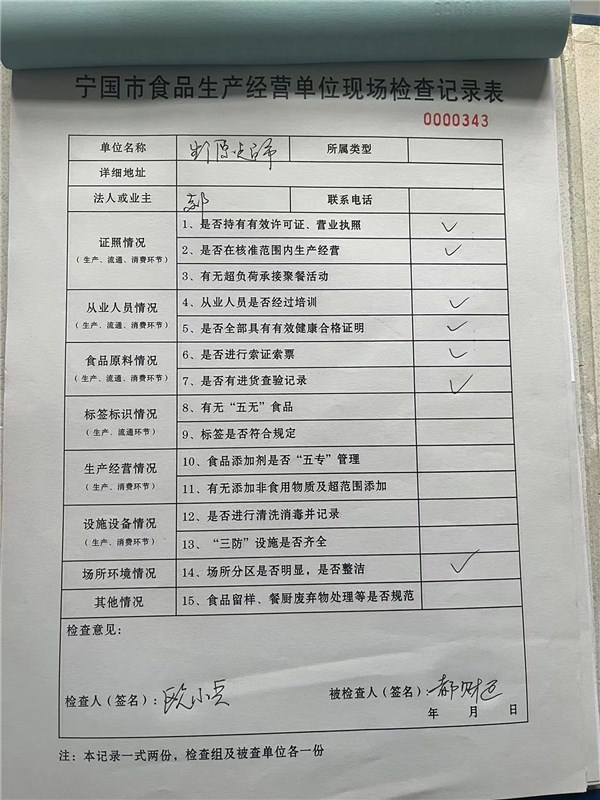 宁国市食品生产经营单位现场检查记录表
0000343
单位名称 所属类型
详细地址
法人或业主 联系电话
证照情况
(生产、流通、消费环节)
1、是否持有有效许可证、营业执照 ✓
2、是否在核准范围内生产经营 ✓
3、有无超负荷承接聚餐活动
从业人员情况
(生产、流通、消费环节)
4、从业人员是否经过培训 ✓
5、是否全部具有有效健康合格证明 ✓
食品原料情况
(生产、流通、消费环节)
6、是否进行索证索票 ✓
7、是否有进货查验记录 ✓
标签标识情况
(生产、流通环节)
8、有无“五无”食品
9、标签是否符合规定
生产经营情况
(生产、消费环节)
10、食品添加剂是否“五专”管理
11、有无添加非食用物质及超范围添加
设施设备情况
(生产、消费环节)
12、是否进行清洗消毒并记录
13、“三防”设施是否齐全
场所环境情况 14、场所分区是否明显，是否整洁 ✓
其他情况 15、食品留样、餐厨废弃物处理等是否规范
检查意见：
检查人（签名）： 被检查人（签名）：
年 月 日
注：本记录一式两份，检查组及被查单位各一份